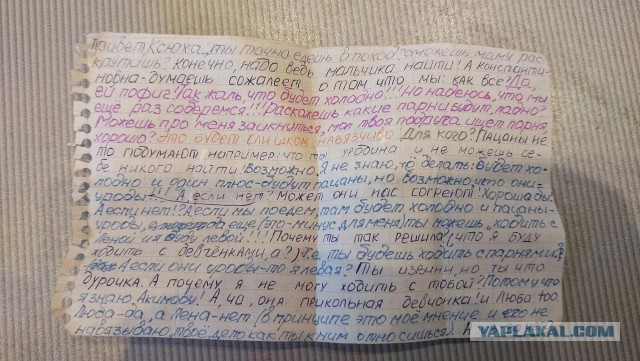 Привет, Ксюха, ты точно едешь в поход? Сможешь маму рас-
крутишь? Конечно, надо ведь мальчика найти! А Константи-
новна-думаешь сожалеет о том что мы как все? Да,
ей пофиг! Так жаль, что будет холодно!!! Но надеюсь, что мы
ещё раз соберемся!!! Расскажешь какие парни будут, ладно?
Можешь про меня заикнуться, мол твоя подруга ищет парня
хорошо? Это будет слишком навязчиво. Для кого? Пацаны не
то подумают например: что ты уродина и не можешь се-
бе никого найти! Возможно. Я не знаю, чё делать: будет хо-
лодно и один плюс-будут пацаны, но возможно, что они-
уроды!!! А если нет? Может они нас согреют! Хороша бы.
А если нет!? А если мы поедем, там будет холодно и пацаны-
уроды, да еще (это-минус для меня) ты можешь ходить с
Леной и я буду левой!!! Почему ты так решила, (что я буду
ходить с девчёнками, а?) Т.е. ты будешь ходить с парнями?
А если они уроды-то я левая? Ты извени, но ты что
дурочка. А почему я не могу ходить с тобой? Потому что
я знаю, Акимову! А, чё, она прикольная девчонка! и Люба too.
Люба-да, а Лена-нет (в принципе это моё мнение и его не
навязываю, твоё дело как ты к ним относишься). А
YAPLAKAL.COM